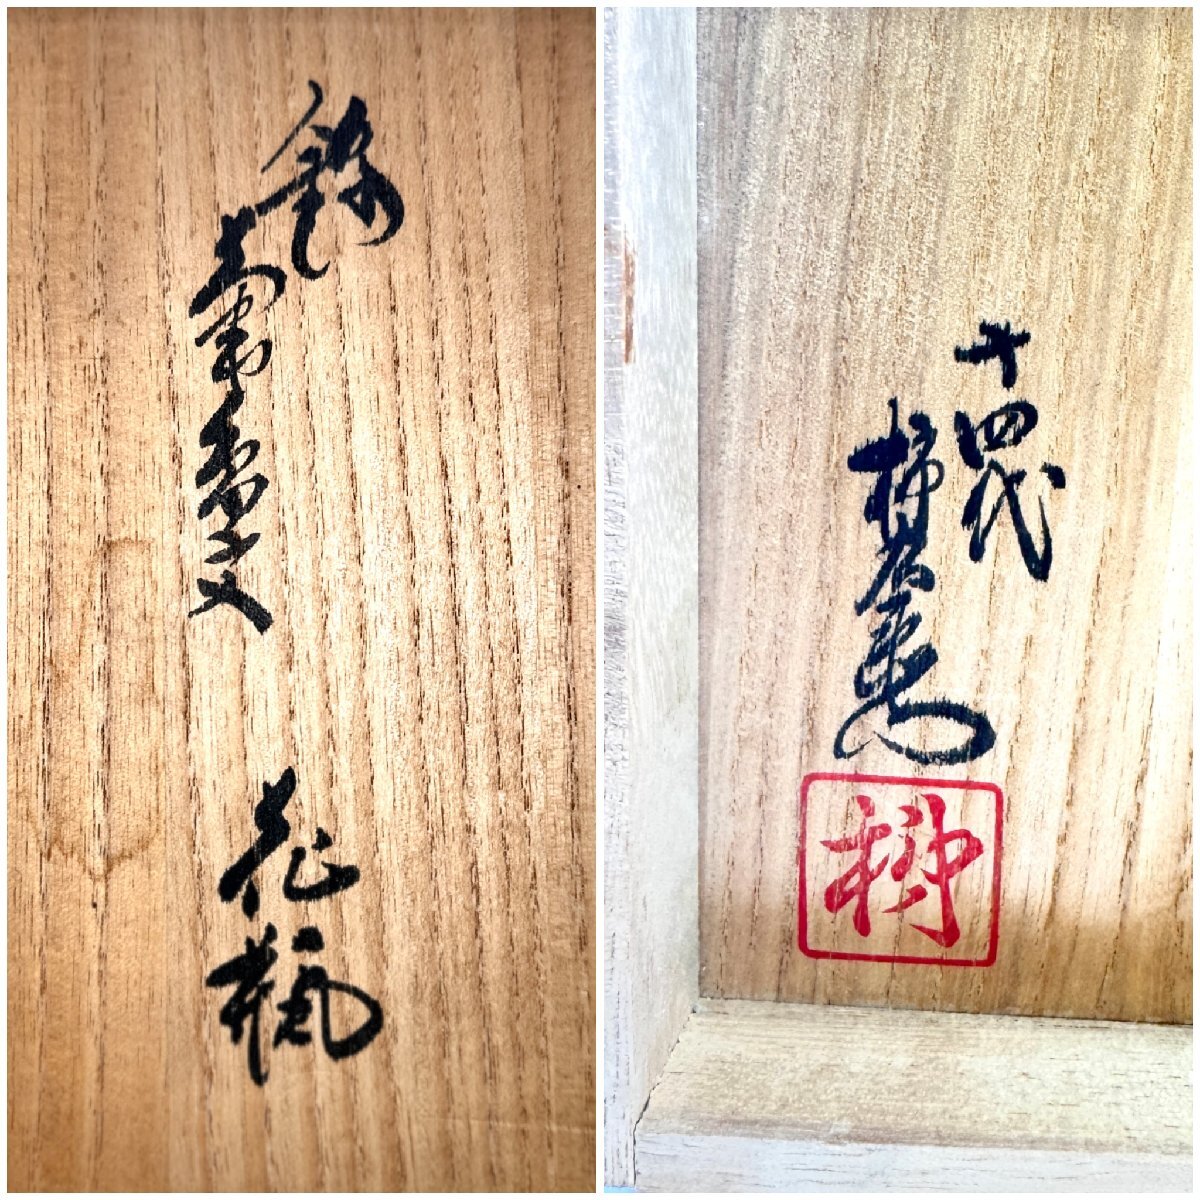 錦
文
花瓶
十四代
柿右衛門
柿